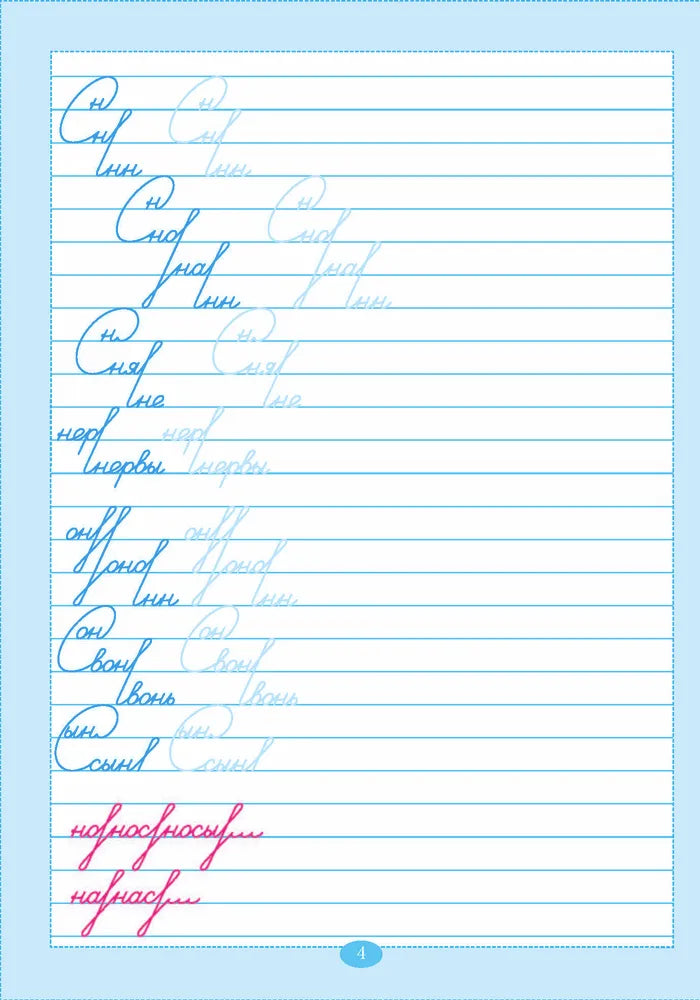 н н
сн сн
нн нн
н н
сно сно
на на
нн нн
н. н.
сня сня
не не
нер нер
нервы нервы
он он
оно оно
нн нн
он он
вон вон
вонь вонь
ын. ын.
сын сын
но нос носы ...
на нас ...
4